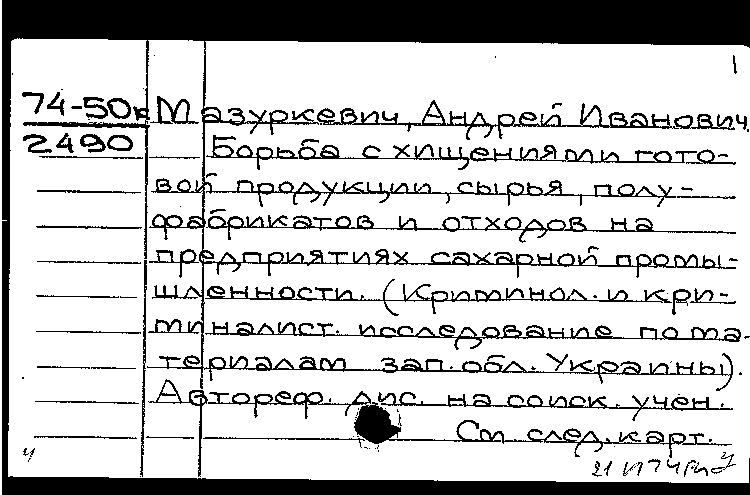 1
74-50к Мазуркевич, Андрей Иванович.
2490 Борьба с хищениями гото-
вой продукции, сырья, полу-
фабрикатов и отходов на
предприятиях сахарной промы-
шленности. (Криминол. и кри-
миналист. исследование по ма-
териалам зап. обл. Украины).
Автореф. дис. на соиск. учен.
См. след. карт.